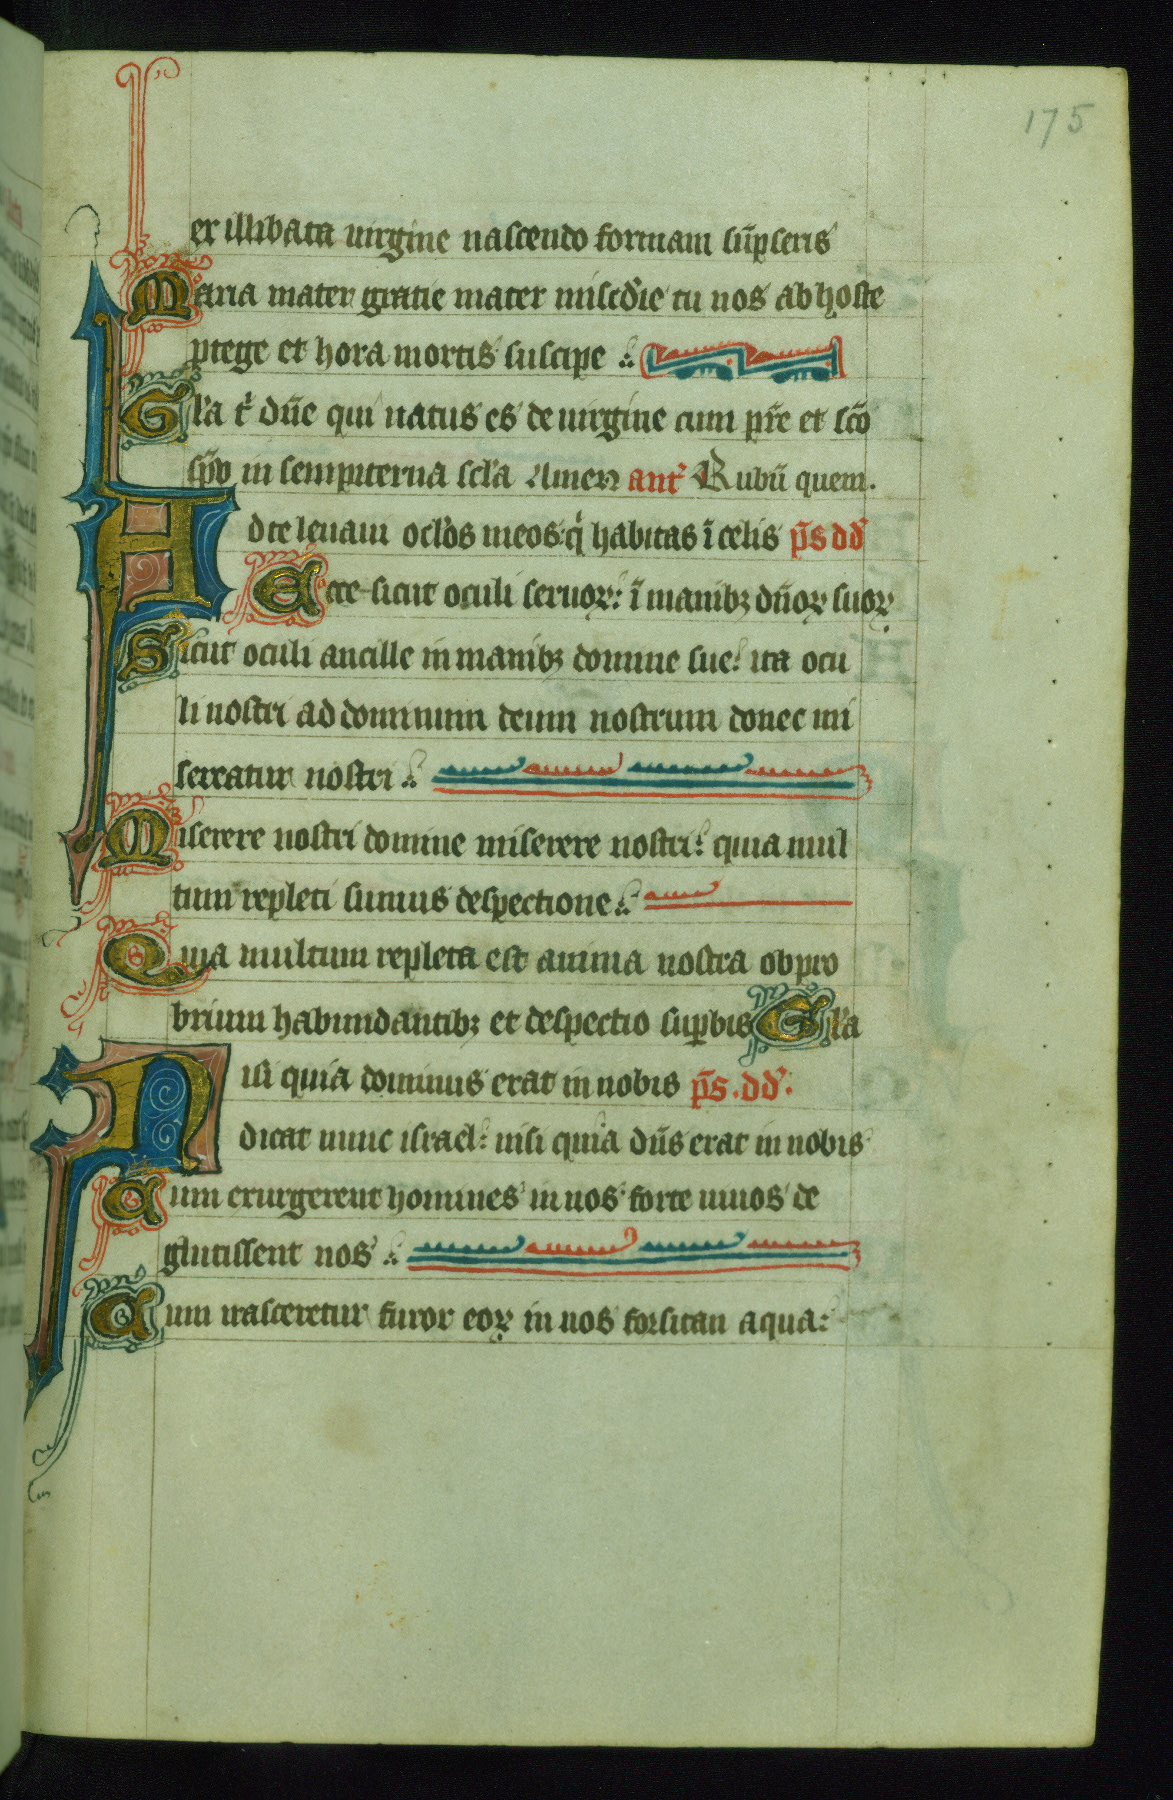 175
ex illibata uirgine nascendo formam sũpseris
Maria mater gratie mater misc̃die tu nos ab hoste
ꝓtege et hora mortis suscipe
Gl'a t' dñe qui natus es de uirgine cum pr̃e et sc̃o
sp̃u in sempiterna sc̃la Amen ant' Rubũ quem.
Ad te leuaui oc'los meos: q' habitas ĩ celis p̃s dd'
Ecce sicut oculi seruoꝝ: ĩ manibꝫ dñoꝝ suoꝝ
Sicut oculi ancille in manibꝫ domine sue: ita ocu
li nostri ad dominum deum nostrum donec mi
sereatur nostri
Miserere nostri domine miserere nostri: quia mul
tum repleti sumus despectione
Quia multum repleta est anima nostra obpro
brium habundantibꝫ et despectio suꝑbis Gl'a
Nisi quia dominus erat in nobis p̃s. dd'.
dicat nunc israel: nisi quia dñs erat in nobis
Cum exurgerent homines in nos: forte uiuos de
glutissent nos
Cum irasceretur furor eoꝝ in nos forsitan aqua: